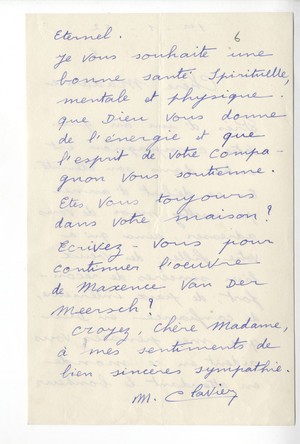 6
Eternel.
Je vous souhaite une
bonne santé Spirituelle,
mentale et physique.
que Dieu vous donne
de l'énergie et que
l'esprit de votre Compa-
gnon vous soutienne.
Etes-vous toujours
dans votre maison?
Ecrivez-vous pour
continuer l'oeuvre
de Maxence Van Der
Meersch?
Croyez, chère Madame,
à mes sentiments de
bien sincères sympathie.
M. Clavier